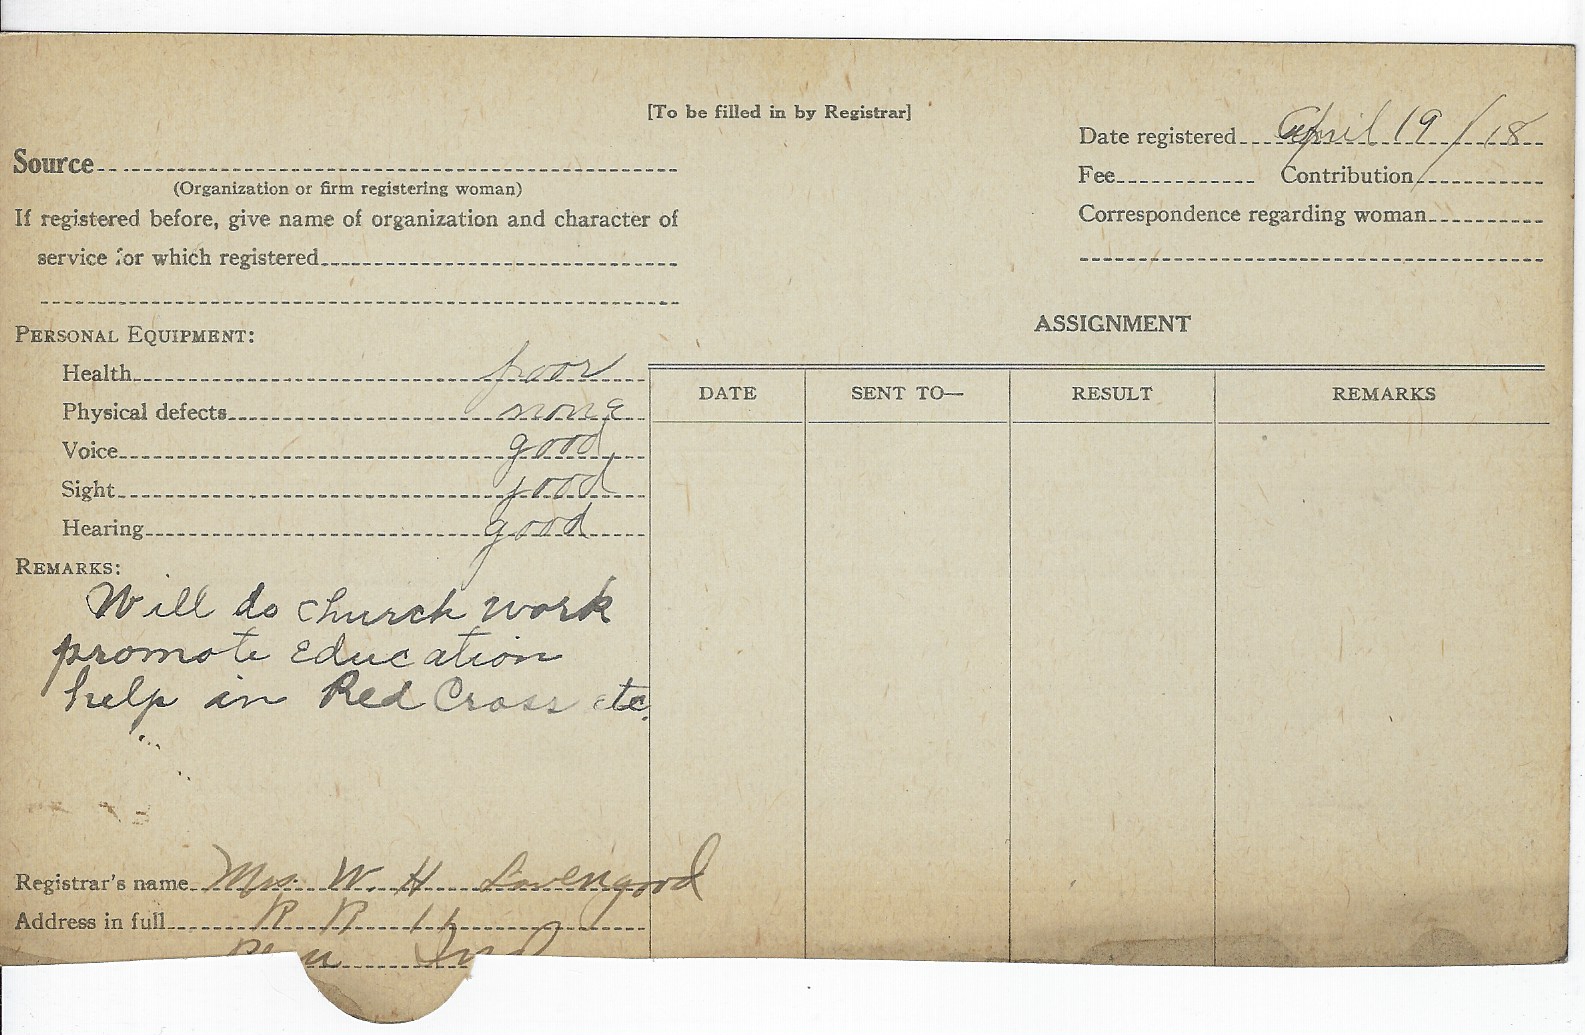 [To be filled in by Registrar]
Date registered April 19/18
Source
(Organization or firm registering woman)
Fee Contribution
If registered before, give name of organization and character of
service for which registered
Correspondence regarding woman
PERSONAL EQUIPMENT:
Health poor
Physical defects none
Voice good
Sight good
Hearing good
ASSIGNMENT
DATE SENT TO— RESULT REMARKS
REMARKS:
Will do church work
promote education
help in Red Cross etc.
Registrar's name Mrs. W. H. Lovengood
Address in full R R 11
Peru Ind